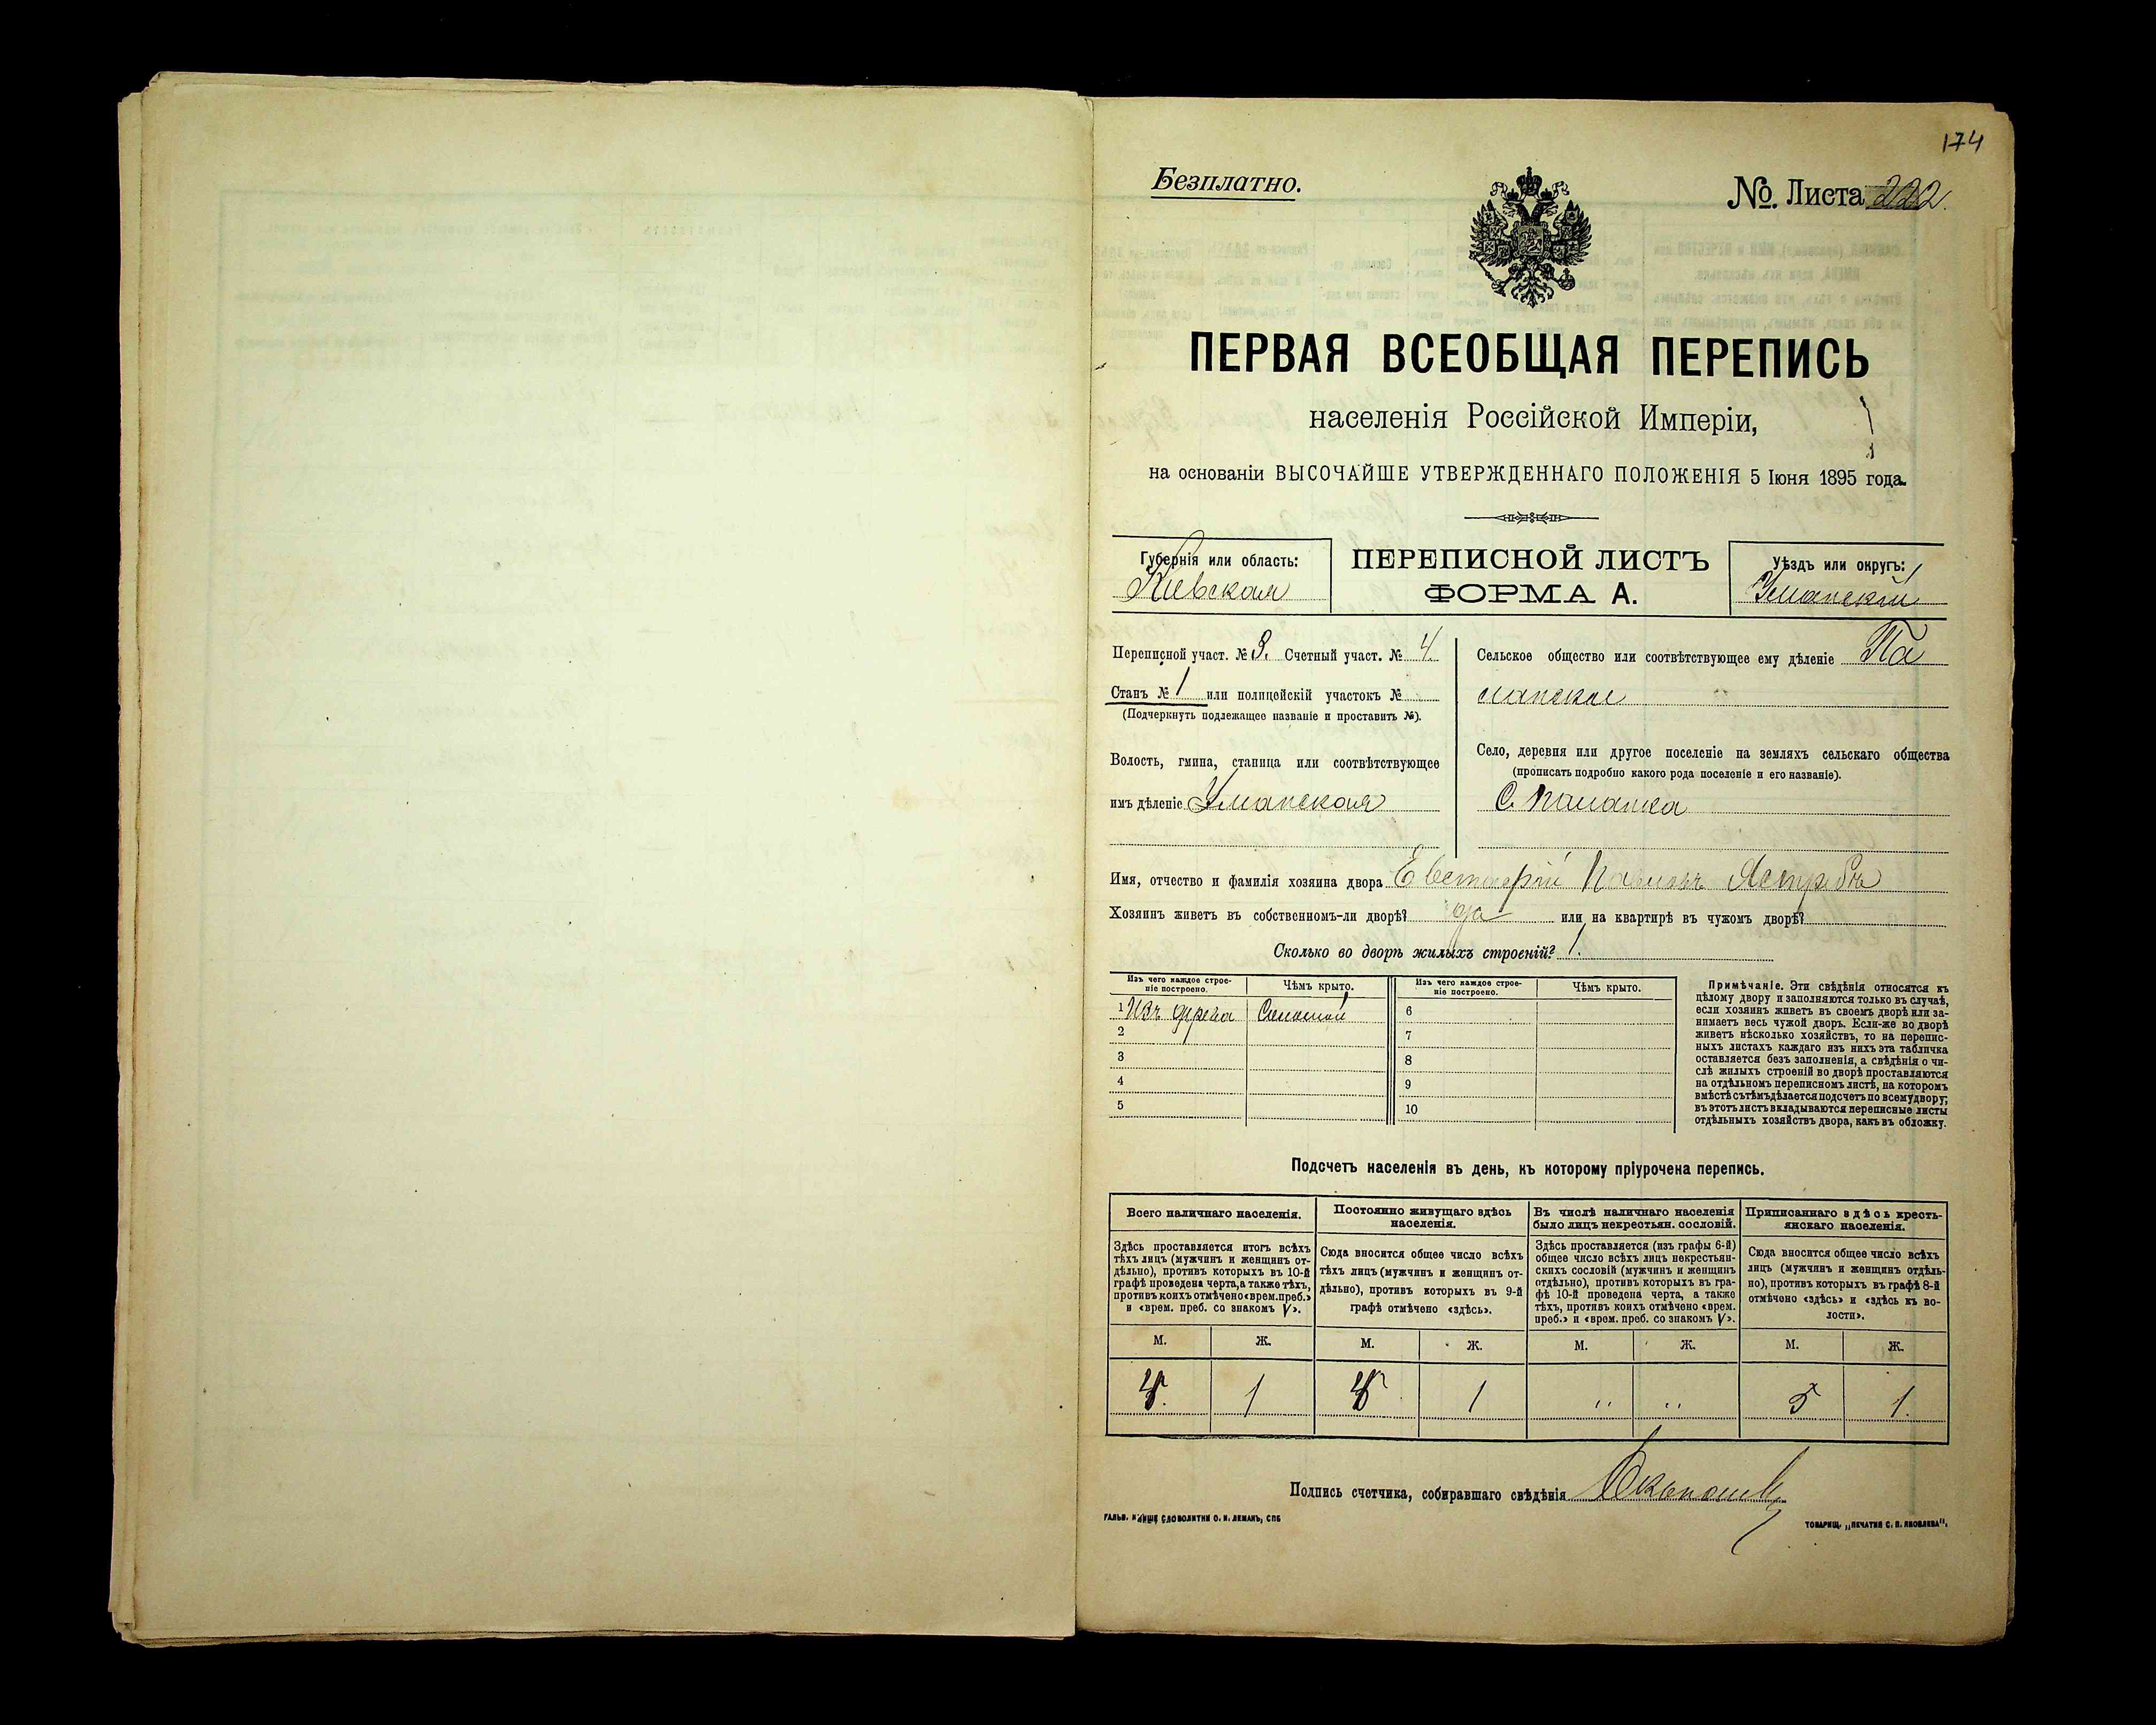 174
Безплатно.
№. Листа 222.
ПЕРВАЯ ВСЕОБЩАЯ ПЕРЕПИСЬ
населенія Россійской Имперіи,
на основаніи ВЫСОЧАЙШЕ УТВЕРЖДЕННАГО ПОЛОЖЕНІЯ 5 Іюня 1895 года.
Губернія или область:
Кіевская
ПЕРЕПИСНОЙ ЛИСТЪ
ФОРМА А.
Уѣздъ или округъ:
Уманскій
Переписной участ. № 3. Счетный участ. № 4.
Станъ № 1 или полицейскій участокъ №
(Подчеркнуть подлежащее названіе и проставить №).
Волость, гмина, станица или соотвѣтствующее
имъ дѣленіе Уманская
Сельское общество или соотвѣтствующее ему дѣленіе Па
ланское
Село, деревня или другое поселеніе на земляхъ сельскаго общества
(прописать подробно какого рода поселеніе и его названіе).
С. Паланка
Имя, отчество и фамилія хозяина двора Евстафій Павловъ
Хозяинъ живетъ въ собственномъ-ли дворѣ? да или на квартирѣ въ чужомъ дворѣ?
Сколько во дворѣ жилыхъ строеній? 1.
Изъ чего каждое строе-
ніе построено.
Чѣмъ крыто.
Изъ чего каждое строе-
ніе построено.
Чѣмъ крыто.
1 Изъ дерева Соломой
2
3
4
5
6
7
8
9
10
Примѣчаніе. Эти свѣдѣнія относятся къ
цѣлому двору и заполняются только въ случаѣ,
если хозяинъ живетъ въ своемъ дворѣ или за-
нимаетъ весь чужой дворъ. Если-же во дворѣ
живетъ нѣсколько хозяйствъ, то на перепис-
ныхъ листахъ каждаго изъ нихъ эта табличка
оставляется безъ заполненія, а свѣдѣнія о чи-
слѣ жилыхъ строеній во дворѣ проставляются
на отдѣльномъ переписномъ листѣ, на которомъ
вмѣстѣ съ тѣмъ дѣлается подсчетъ по всему двору;
въ этотъ листъ вкладываются переписные листы
отдѣльныхъ хозяйствъ двора, какъ въ обложку.
Подсчетъ населенія въ день, къ которому пріурочена перепись.
Всего наличнаго населенія.
Здѣсь проставляется итогъ всѣхъ
тѣхъ лицъ (мужчинъ и женщинъ от-
дѣльно), противъ которыхъ въ 10-й
графѣ проведена черта, а также тѣхъ,
противъ коихъ отмѣчено «врем. преб.»
и «врем. преб. со знакомъ V».
Постоянно живущаго здѣсь
населенія.
Сюда вносится общее число всѣхъ
тѣхъ лицъ (мужчинъ и женщинъ от-
дѣльно), противъ которыхъ въ 9-й
графѣ отмѣчено «здѣсь».
Въ числѣ наличнаго населенія
было лицъ некрестьян. сословій.
Здѣсь проставляется (изъ графы 6-й)
общее число всѣхъ лицъ некрестьян-
скихъ сословій (мужчинъ и женщинъ
отдѣльно), противъ которыхъ въ гра-
фѣ 10-й проведена черта, а также
тѣхъ, противъ коихъ отмѣчено «врем.
преб.» и «врем. преб. со знакомъ V».
Приписаннаго здѣсь кресть-
янскаго населенія.
Сюда вносится общее число всѣхъ
лицъ (мужчинъ и женщинъ отдѣль-
но), противъ которыхъ въ графѣ 8-й
отмѣчено «здѣсь» и «здѣсь къ во-
лости».
М. Ж. М. Ж. М. Ж. М. Ж.
1 1 " " 5 1.
Подпись счетчика, собиравшаго свѣдѣнія
ГАЛЬВ. КЛИШЕ СЛОВОЛИТНИ О. И. ЛЕМАНЪ, СПБ
ТОВАРИЩ. „ПЕЧАТНЯ С. П. ЯКОВЛЕВА".